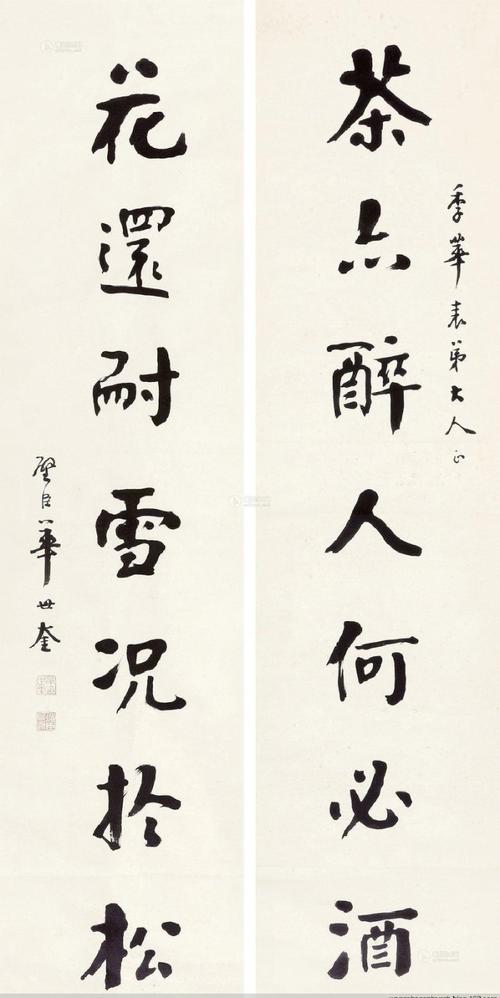 季華表弟大人正
茶亦醉人何必酒
花還耐雪况於松
璧臣華世奎